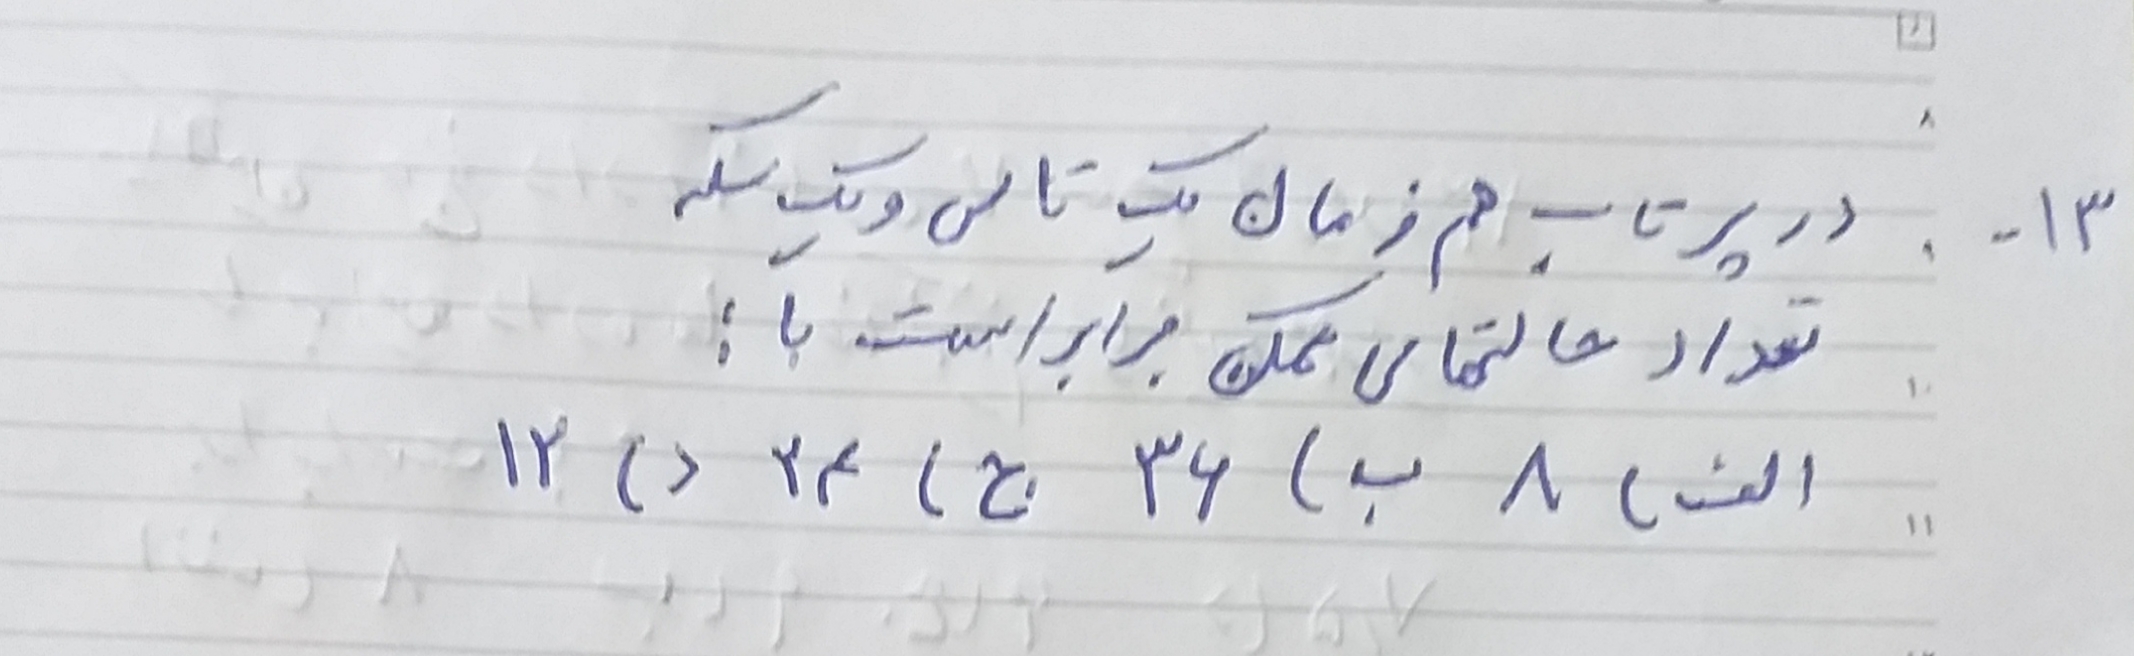 ۱۳- در پرتاب هم زمان یک تاس و یک سکه
تعداد حالتهای ممکن برابر است با :
الف) ۸ ب) ۳۶ ج) ۲۴ د) ۱۲
۸
۹
۱۰
۱۱